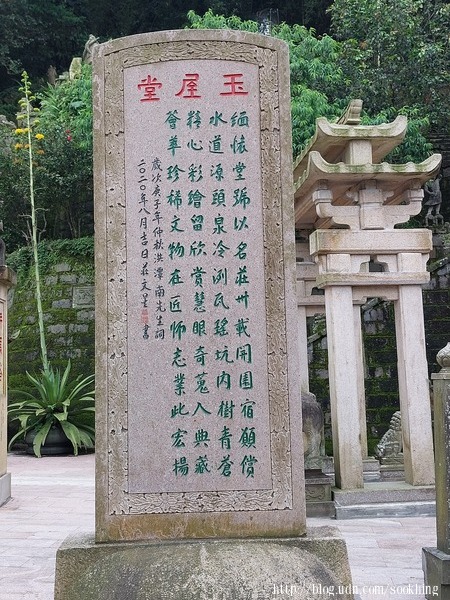 玉屋堂
緬懷堂號以名莊卅載開園宿願償
水道源頭泉冷冽瓦瑤坑內樹青蒼
精心彩繪留欣賞慧眼奇蒐入典藏
薈萃珍稀文物在匠師志業此宏揚
歲次庚子年仲秋洪澤南先生詞
二○二○年八月吉日莊文星書
http://blog.udn.com/sookhing